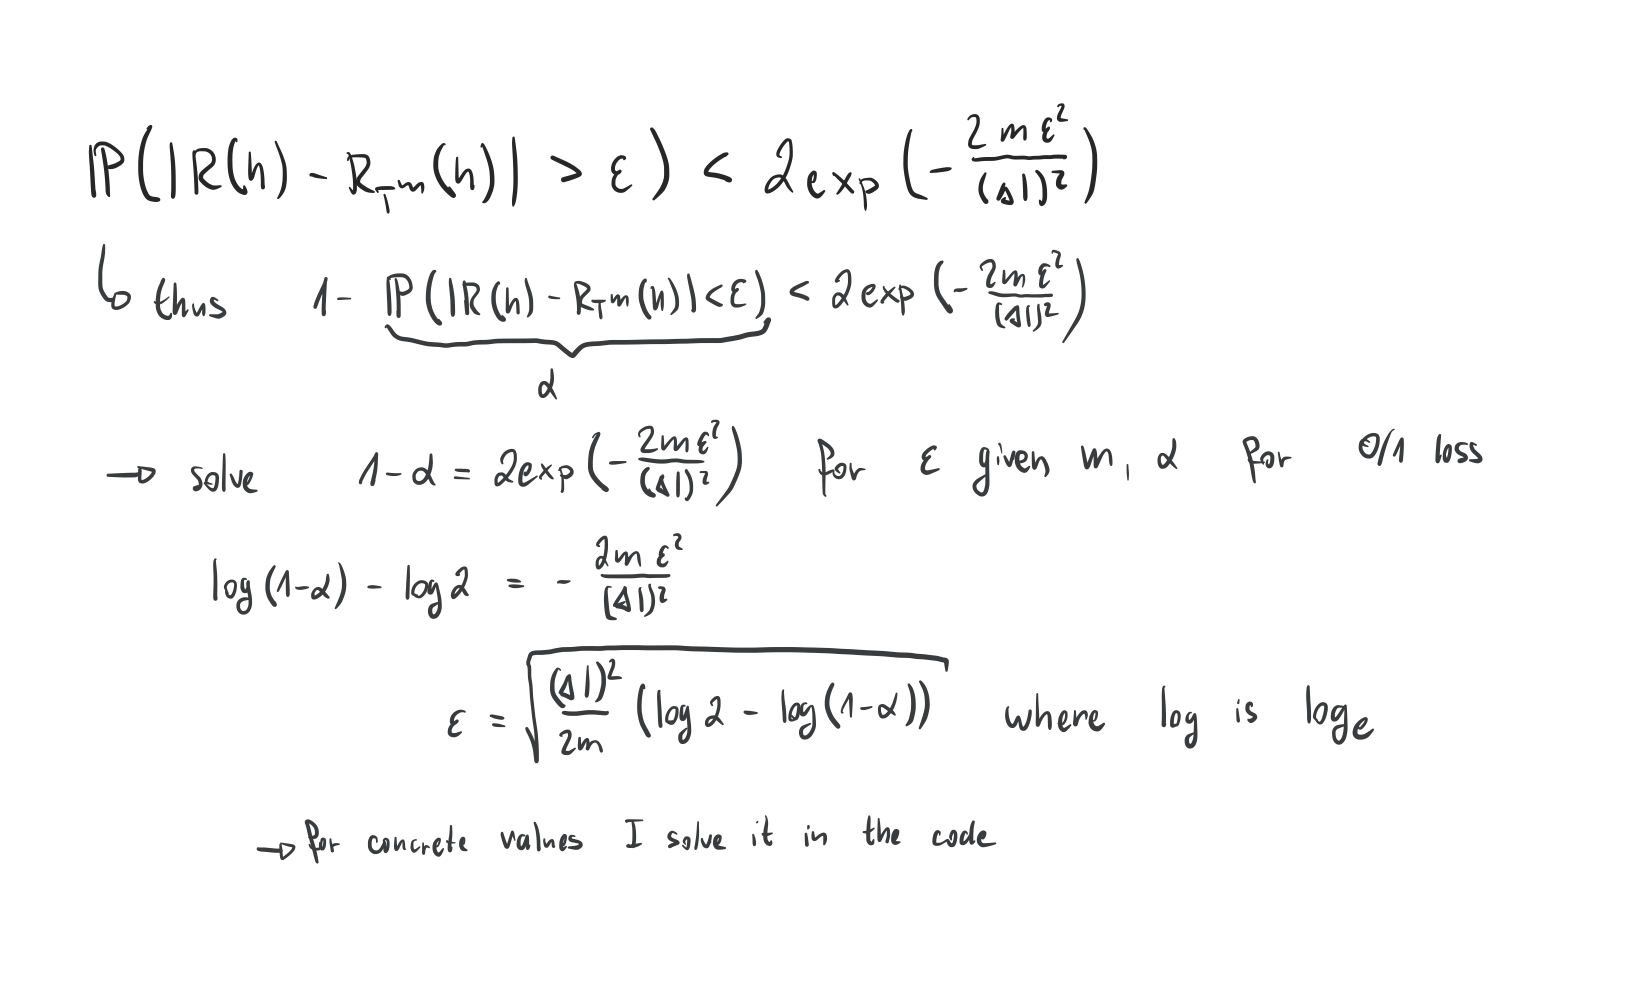 ℙ(|R(h) - R_{T^m}(h)| > ε) < 2 exp(- 2mε²/(Δl)²)
↳ thus 1 - ℙ(|R(h) - R_{T^m}(h)| < ε) < 2 exp(- 2mε²/(Δl)²)
α
→ solve 1-α = 2 exp(- 2mε²/(Δl)²) for ε given m, α for 0/1 loss
log(1-α) - log 2 = - 2mε²/(Δl)²
ε = √((Δl)²/2m (log 2 - log(1-α))) where log is log_e
→ for concrete values I solve it in the code